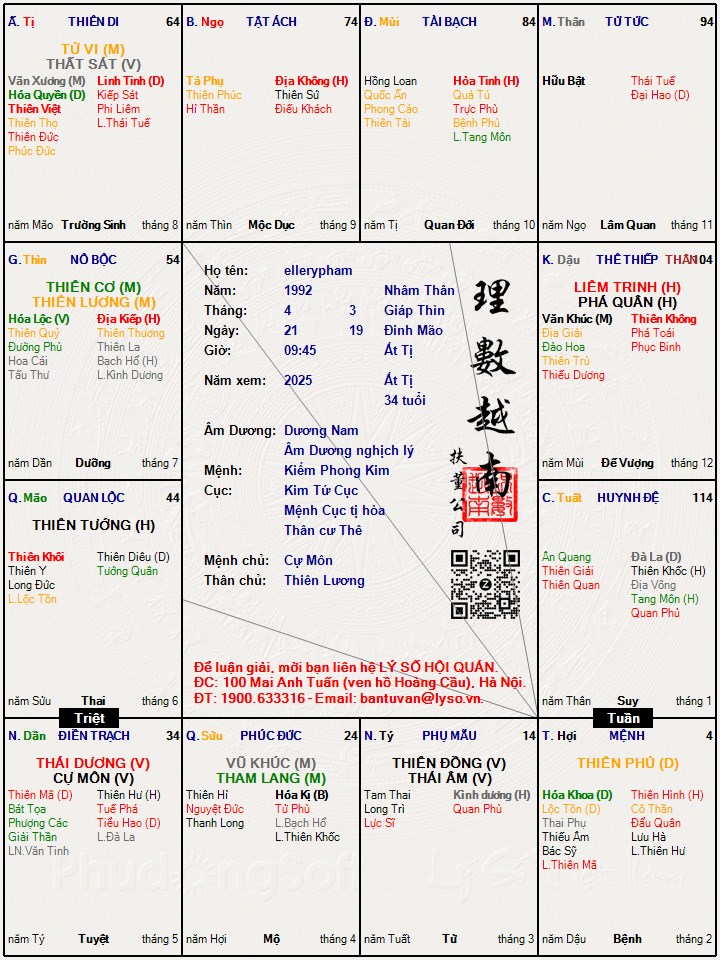 Ấ. Tị THIÊN DI 64
TỬ VI (M)
THẤT SÁT (V)
Văn Xương (M) Linh Tinh (D)
Hóa Quyền (D) Kiếp Sát
Thiên Việt Phi Liêm
Thiên Thọ L.Thái Tuế
Thiên Đức
Phúc Đức
năm Mão Trường Sinh tháng 8
B. Ngọ TẬT ÁCH 74
Tả Phụ Địa Không (H)
Thiên Phúc Thiên Sứ
Hỉ Thần Điếu Khách
năm Thìn Mộc Dục tháng 9
Đ. Mùi TÀI BẠCH 84
Hồng Loan Hỏa Tinh (H)
Quốc Ấn Quả Tú
Phong Cáo Trực Phù
Thiên Tài Bệnh Phù
L.Tang Môn
năm Tị Quan Đới tháng 10
M. Thân TỬ TỨC 94
Hữu Bật Thái Tuế
Đại Hao (D)
năm Ngọ Lâm Quan tháng 11
G. Thìn NÔ BỘC 54
THIÊN CƠ (M)
THIÊN LƯƠNG (M)
Hóa Lộc (V) Địa Kiếp (H)
Thiên Quý Thiên Thương
Đường Phù Thiên La
Hoa Cái Bạch Hổ (H)
Tấu Thư L.Kình Dương
năm Dần Dưỡng tháng 7
Họ tên: ellerypham
Năm: 1992 Nhâm Thân
Tháng: 4 3 Giáp Thìn
Ngày: 21 19 Đinh Mão
Giờ: 09:45 Ất Tị
Năm xem: 2025 Ất Tị
34 tuổi
Âm Dương: Dương Nam
Âm Dương nghịch lý
Mệnh: Kiếm Phong Kim
Cục: Kim Tứ Cục
Mệnh Cục tị hòa
Thân cư Thê
Mệnh chủ: Cự Môn
Thân chủ: Thiên Lương
理數越南
扶董公司
Để luận giải, mời bạn liên hệ LÝ SỐ HỘI QUÁN.
ĐC: 100 Mai Anh Tuấn (ven hồ Hoàng Cầu), Hà Nội.
ĐT: 1900.633316 - Email: bantuvan@lyso.vn.
K. Dậu THÊ THIẾP THÂN 104
LIÊM TRINH (H)
PHÁ QUÂN (H)
Văn Khúc (M) Thiên Không
Địa Giải Phá Toái
Đào Hoa Phục Binh
Thiên Trù
Thiếu Dương
năm Mùi Đế Vượng tháng 12
Q. Mão QUAN LỘC 44
THIÊN TƯỚNG (H)
Thiên Khôi Thiên Diêu (D)
Thiên Y Tướng Quân
Long Đức
L.Lộc Tồn
năm Sửu Thai tháng 6
Triệt
C. Tuất HUYNH ĐỆ 114
Ân Quang Đà La (D)
Thiên Giải Thiên Khốc (H)
Thiên Quan Địa Võng
Tang Môn (H)
Quan Phủ
năm Thân Suy tháng 1
Tuần
N. Dần ĐIỀN TRẠCH 34
THÁI DƯƠNG (V)
CỰ MÔN (V)
Thiên Mã (D) Thiên Hư (H)
Bát Tọa Tuế Phá
Phượng Các Tiểu Hao (D)
Giải Thần L.Đà La
LN.Văn Tinh
năm Tý Tuyệt tháng 5
Q. Sửu PHÚC ĐỨC 24
VŨ KHÚC (M)
THAM LANG (M)
Thiên Hỉ Hóa Kị (B)
Nguyệt Đức Tử Phù
Thanh Long L.Bạch Hổ
L.Thiên Khốc
năm Hợi Mộ tháng 4
N. Tý PHỤ MẪU 14
THIÊN ĐỒNG (V)
THÁI ÂM (V)
Tam Thai Kình dương (H)
Long Trì Quan Phù
Lực Sĩ
năm Tuất Tử tháng 3
T. Hợi MỆNH 4
THIÊN PHỦ (D)
Hóa Khoa (D) Thiên Hình (H)
Lộc Tồn (D) Cô Thần
Thai Phụ Đẩu Quân
Thiếu Âm Lưu Hà
Bác Sỹ L.Thiên Hư
L.Thiên Mã
năm Dậu Bệnh tháng 2